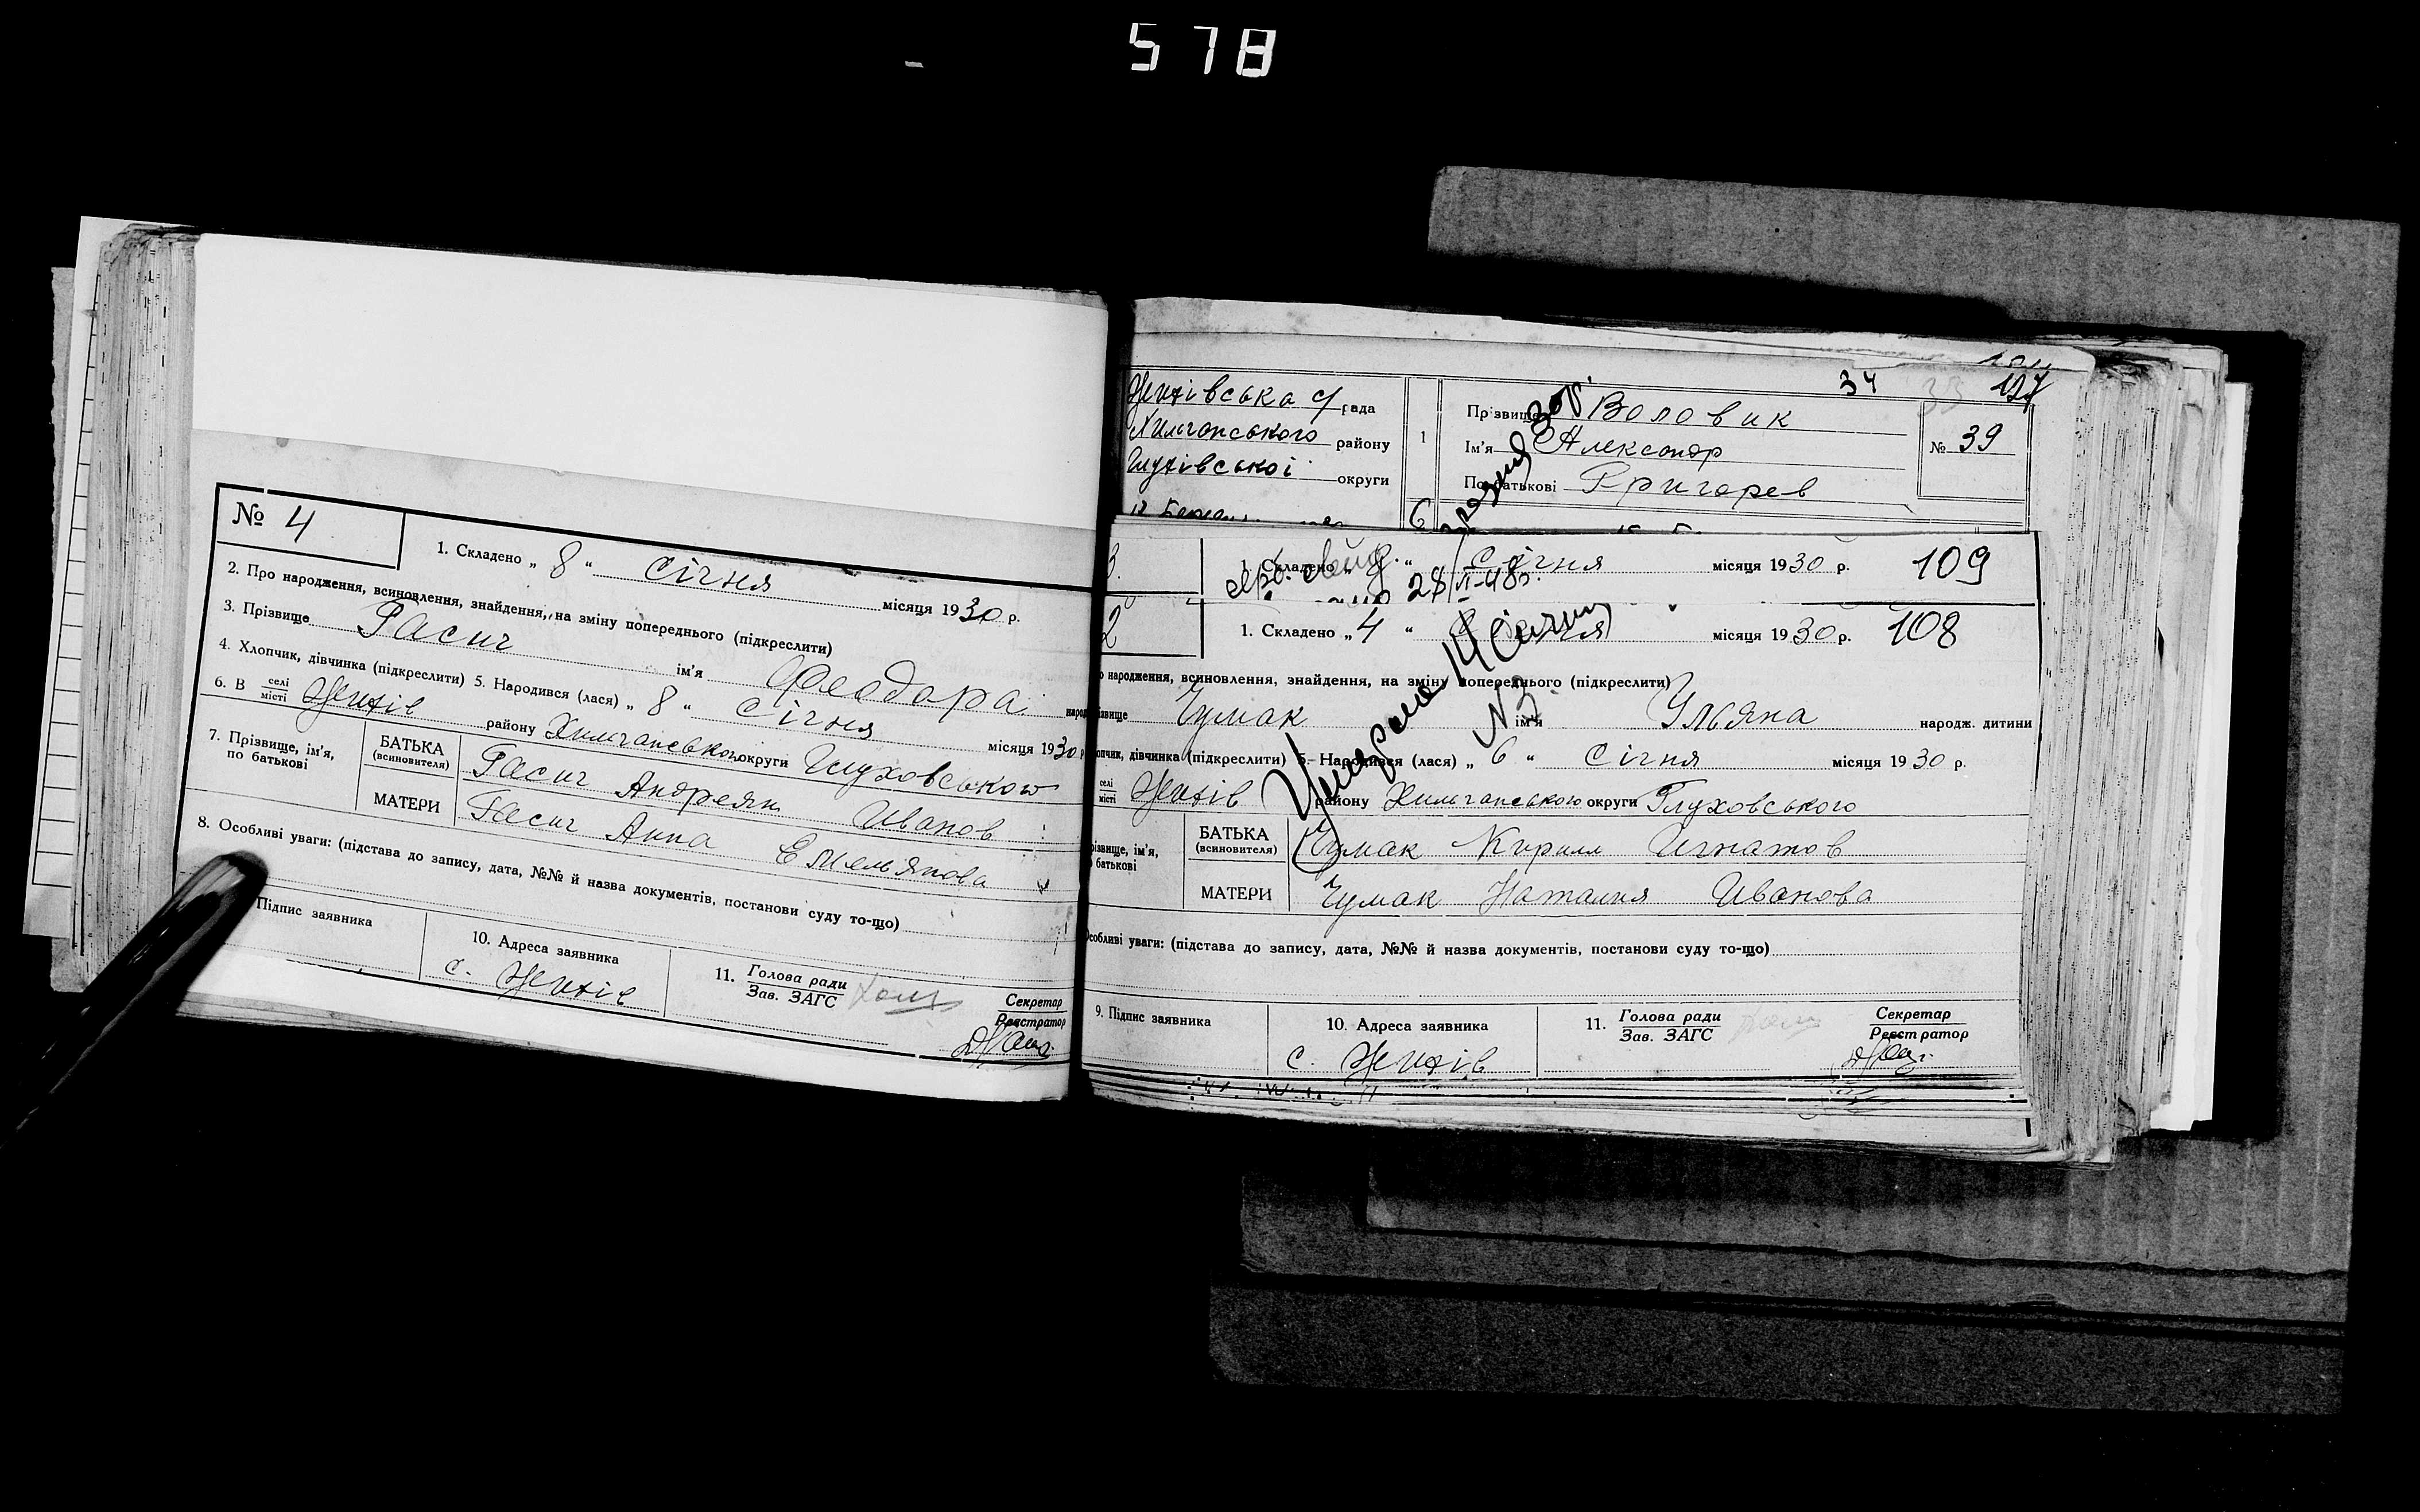 578
№ 4
1. Складено „ 8 “ Січня місяця 1930 р.
2. Про народження, всиновлення, знайдення, на зміну попереднього (підкреслити)
3. Прізвище Гасич ім'я Феодора
4. Хлопчик, дівчинка (підкреслити) 5. Народився (лася) „ 8 “ Січня місяця 1930
6. В селі місті район у округи Глуховського
7. Прізвище, ім'я, по батькові
БАТЬКА (всиновителя) Гасич Андреян Иванов
МАТЕРИ Гасич Анна Емельянова
8. Особливі уваги: (підстава до запису, дата, №№ й назва документів, постанови суду то-що)
Підпис заявника
10. Адреса заявника
с.
11. Голова ради
Зав. ЗАГС
Секретар
Реєстратор
34 33
рада
району
Глухівської округи
1
Прізвище Воловик
Ім'я Александр
По батькові Григорев
№ 39
3.
1. Складено „ 8 “ Січня місяця 1930 р. 109
28/II-48р.
2
1. Складено „ 4 “ Січня місяця 1930 р. 108
народження, всиновлення, знайдення, на зміну попереднього (підкреслити)
Умерла 14 Січня
N3.
Чумак ім'я Ульяна народж. дитини
дівчинка (підкреслити) 5. Народився (лася) „ 6 “ Січня місяця 1930 р.
селі місті району округи Глуховського
ім'я,
батькові
БАТЬКА (всиновителя) Чумак Кирилл Игнатов
МАТЕРИ Чумак Наталия Иванова
Особливі уваги: (підстава до запису, дата, №№ й назва документів, постанови суду то-що)
9. Підпис заявника
10. Адреса заявника
с.
11. Голова ради
Зав. ЗАГС
Секретар
Реєстратор